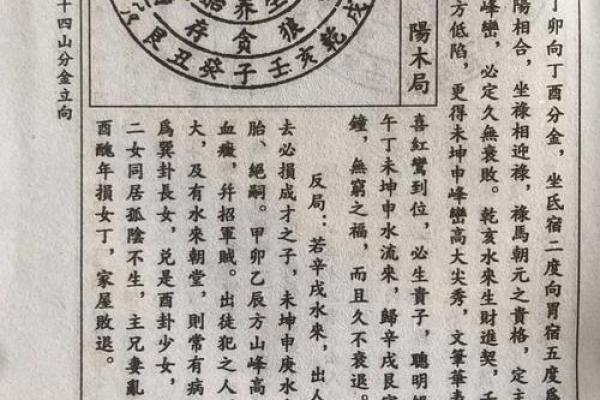 丁卯向丁酉分金，坐氐宿二度向胃宿五度為
陽相合，坐祿相迎祿，祿馬朝元之貴格，定主
峰巒，必定久無衰敗。乾亥水來生財進契，
方低陷，更得未坤申峰巒高大尖秀，文筆華表
陽木局
喜紅鸞到位，必生貴子，聰明
午丁未坤申水流來，歸辛戌艮
鐘，無窮之福，而且久不衰退。
反局：若辛戌水來，出人
去必損成才之子，未坤申庚水
胎、絕嗣。甲卯乙辰方山峰高
血癥，并招軍賊。出徒犯之人
大，及有水來朝堂，則常有病
為巽卦長女，兌是酉卦少女，
二女同居孤陰不生，主兄妻亂
酉醜年損女丁，家屋敗退。
養
存貪狼
艮丑癸子壬亥乾戌
十四山分金立向